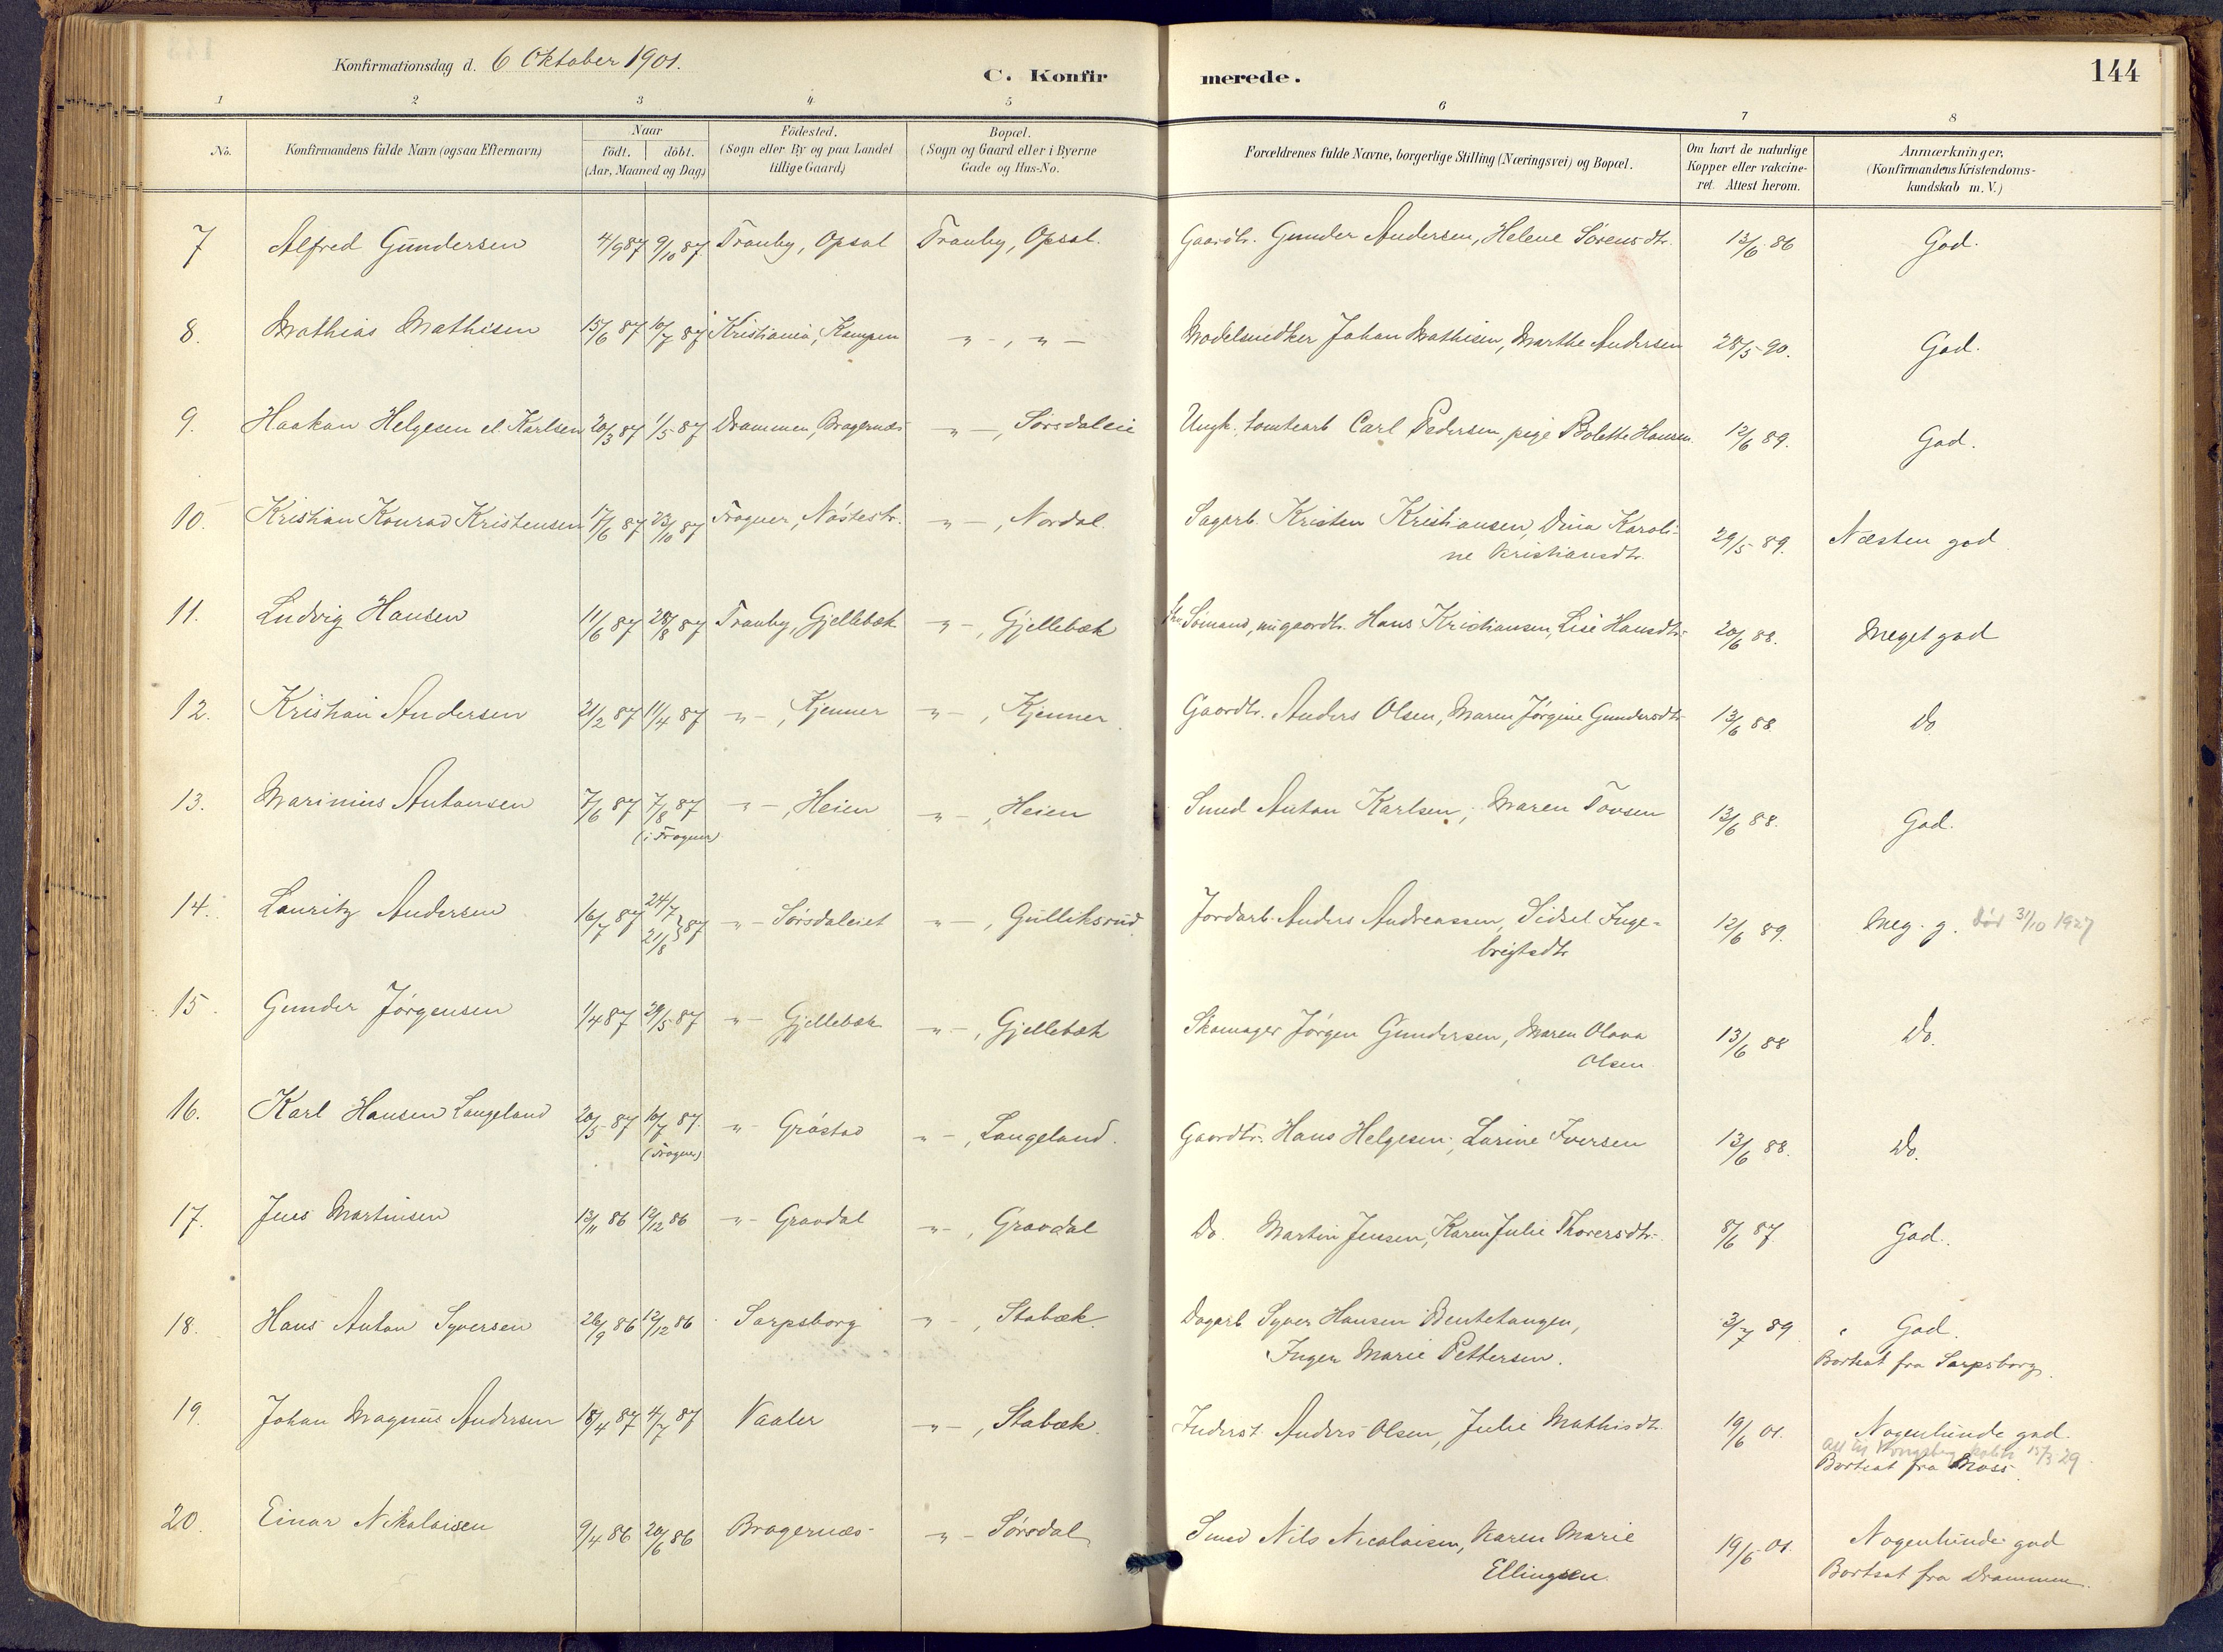 Konfirmationsdag d. 6 Oktober 1901.
C. Konfirmerede.
144
1 2 3 4 5 6 7 8
No.
Konfirmandens fulde Navn (ogsaa Efternavn)
Naar
født. døbt.
(Aar, Maaned og Dag.)
Fødested.
(Sogn eller By og paa Landet
tillige Gaard.)
Bopæl.
(Sogn og Gaard eller i Byerne
Gade og Hus-No.
Forældrenes fulde Navne, borgerlige Stilling (Næringsvei) og Bopæl.
Om havt de naturlige
Kopper eller vakcine-
ret. Attest herom.
Anmærkninger.
(Konfirmandens Kristendoms-
kundskab m. V.)
7 Alfred Gundersen 4/9 87 9/10 87 Tranby, Opsal Tranby, Opsal. Gaardbr. Gunder Andersen, Helene Sørensdtr. 13/6 86 God.
8. Mathias Mathisen 15/6 87 10/7 87 Kristiania, Kampen -"-, -"- Modelsnedker Johan Mathisen, Marthe Andersen 28/5 90. God.
9. Haakon Helgesen el. Karlsen 20/3 87 1/5 87 Drammen, Bragernæs -"-, Sørsdaleie Ungk. tomtearb Carl Pedersen, pige Bolette Hansen. 12/6 89. God.
10. Kristian Konrad Kristensen 17/6 87 23/10 87 Frogner, Nøstestr. -"-, Nordal. Sagarb. Kristen Kristiansen, Dina Karoli-
ne Kristiansdtr. 29/5 89. Næsten god
11. Ludvig Hansen 11/6 87 28/8 87 Tranby, Gjellebæk -"-, Gjellebæk Sømand, nu gaardbr. Hans Kristiansen, Lise Hansdtr. 20/6 88. Meget god
12. Kristian Andersen 21/2 87 11/4 87 -"-, Kjenner -"-, Kjenner. Gaardbr. Anders Olsen, Maren Jørgine Gundersdtr 13/6 88 Do
13. Marinius Antonsen 7/6 87 7/8 87 -"-, Heien -"-, Heien Smed Anton Karlsen, Maren Tovsen 13/6 88. God.
(i Frogner)
14. Lauritz Andersen 16/7 87 24/7 21/8 } 87 -"- Sørsdaleiet -"-, Gulliksrud Jordarb. Anders Andreassen, Sidsel Inge-
brigtsdtr 12/6 89. Meg. g. død 31/10 1927
15. Gunder Jørgensen 1/4 87 29/5 87 -"- Gjellebæk -"-, Gjellebæk Skomager Jørgen Gundersen, Maren Olava
Olsen. 13/6 88 Do.
16. Karl Hansen Langeland 20/5 87 10/7 87. -"- Grøstad -"-, Langeland. Gaardbr. Hans Helgesen, Larine Iversen 13/6 88. Do.
(Frogner)
17. Jens Martinsen 13/11 86 12/12 86 -"- Gravdal -"-, Gravdal Do. Martin Jensen, Karen Julie Thorersdtr. 8/6 87 God.
18. Hans Anton Syversen 26/9 86 12/12 86 Sarpsborg -"-, Stabæk. Dagarb Syver Hansen Bentetangen,
Inger Marie Pettersen. 3/7 89 God.
Bortsat fra Sarpsborg.
19. Johan Magnus Andersen 18/4 87 4/7 87 Vaaler -"-, Stabæk. Inderst. Anders Olsen, Julie Mathisdtr. 19/6 01. Nogenlunde god.
Att til Kongsberg politi 15/3 29.
Bortsat fra Moss.
20. Einar Nikolaisen 9/4 86 20/6 86 Bragernæs -"- Sørsdal Smed Nils Nicolaisen, Karen Marie
Ellingsen. 19/6 01. Nogenlunde god
Bortsat fra Drammen.